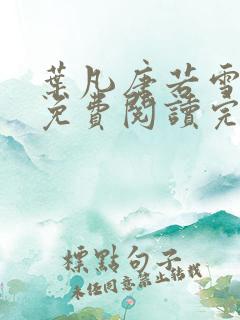 葉凡唐若雪
免費閱讀完
標點句子
未經同意禁止轉載